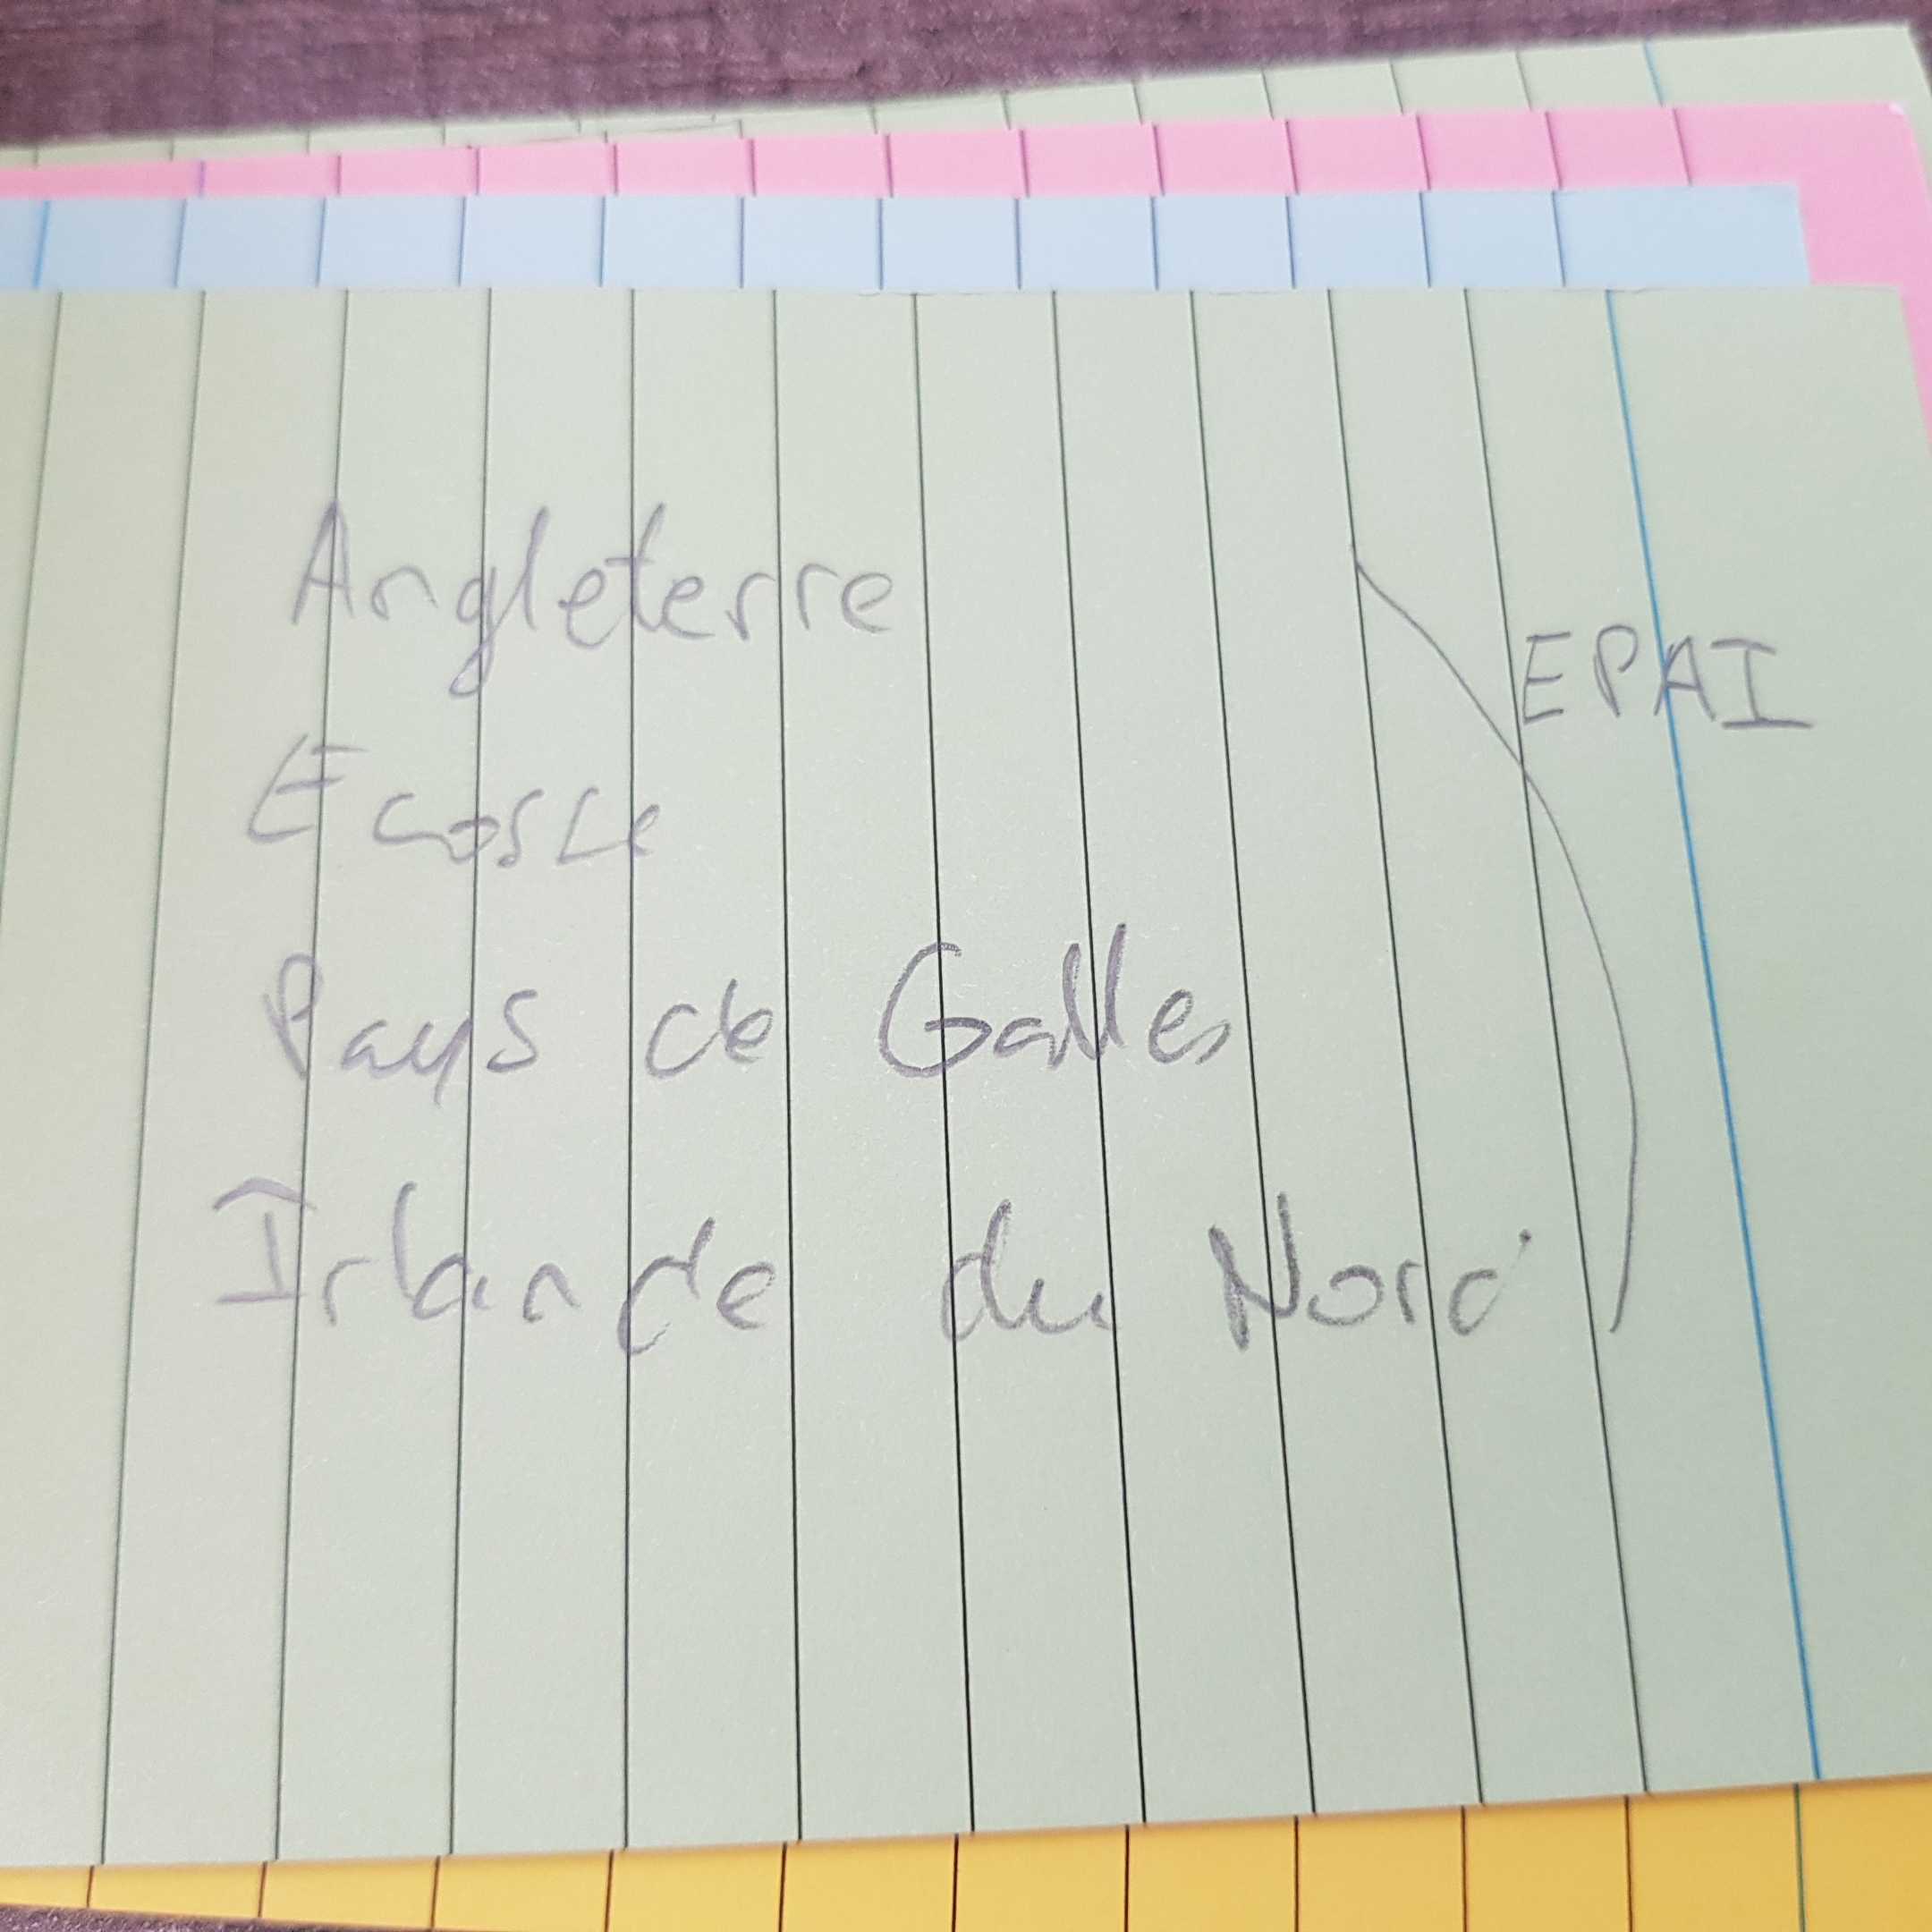 Angleterre
Ecosse
Pays de Galles
Irlande du Nord
EPAI